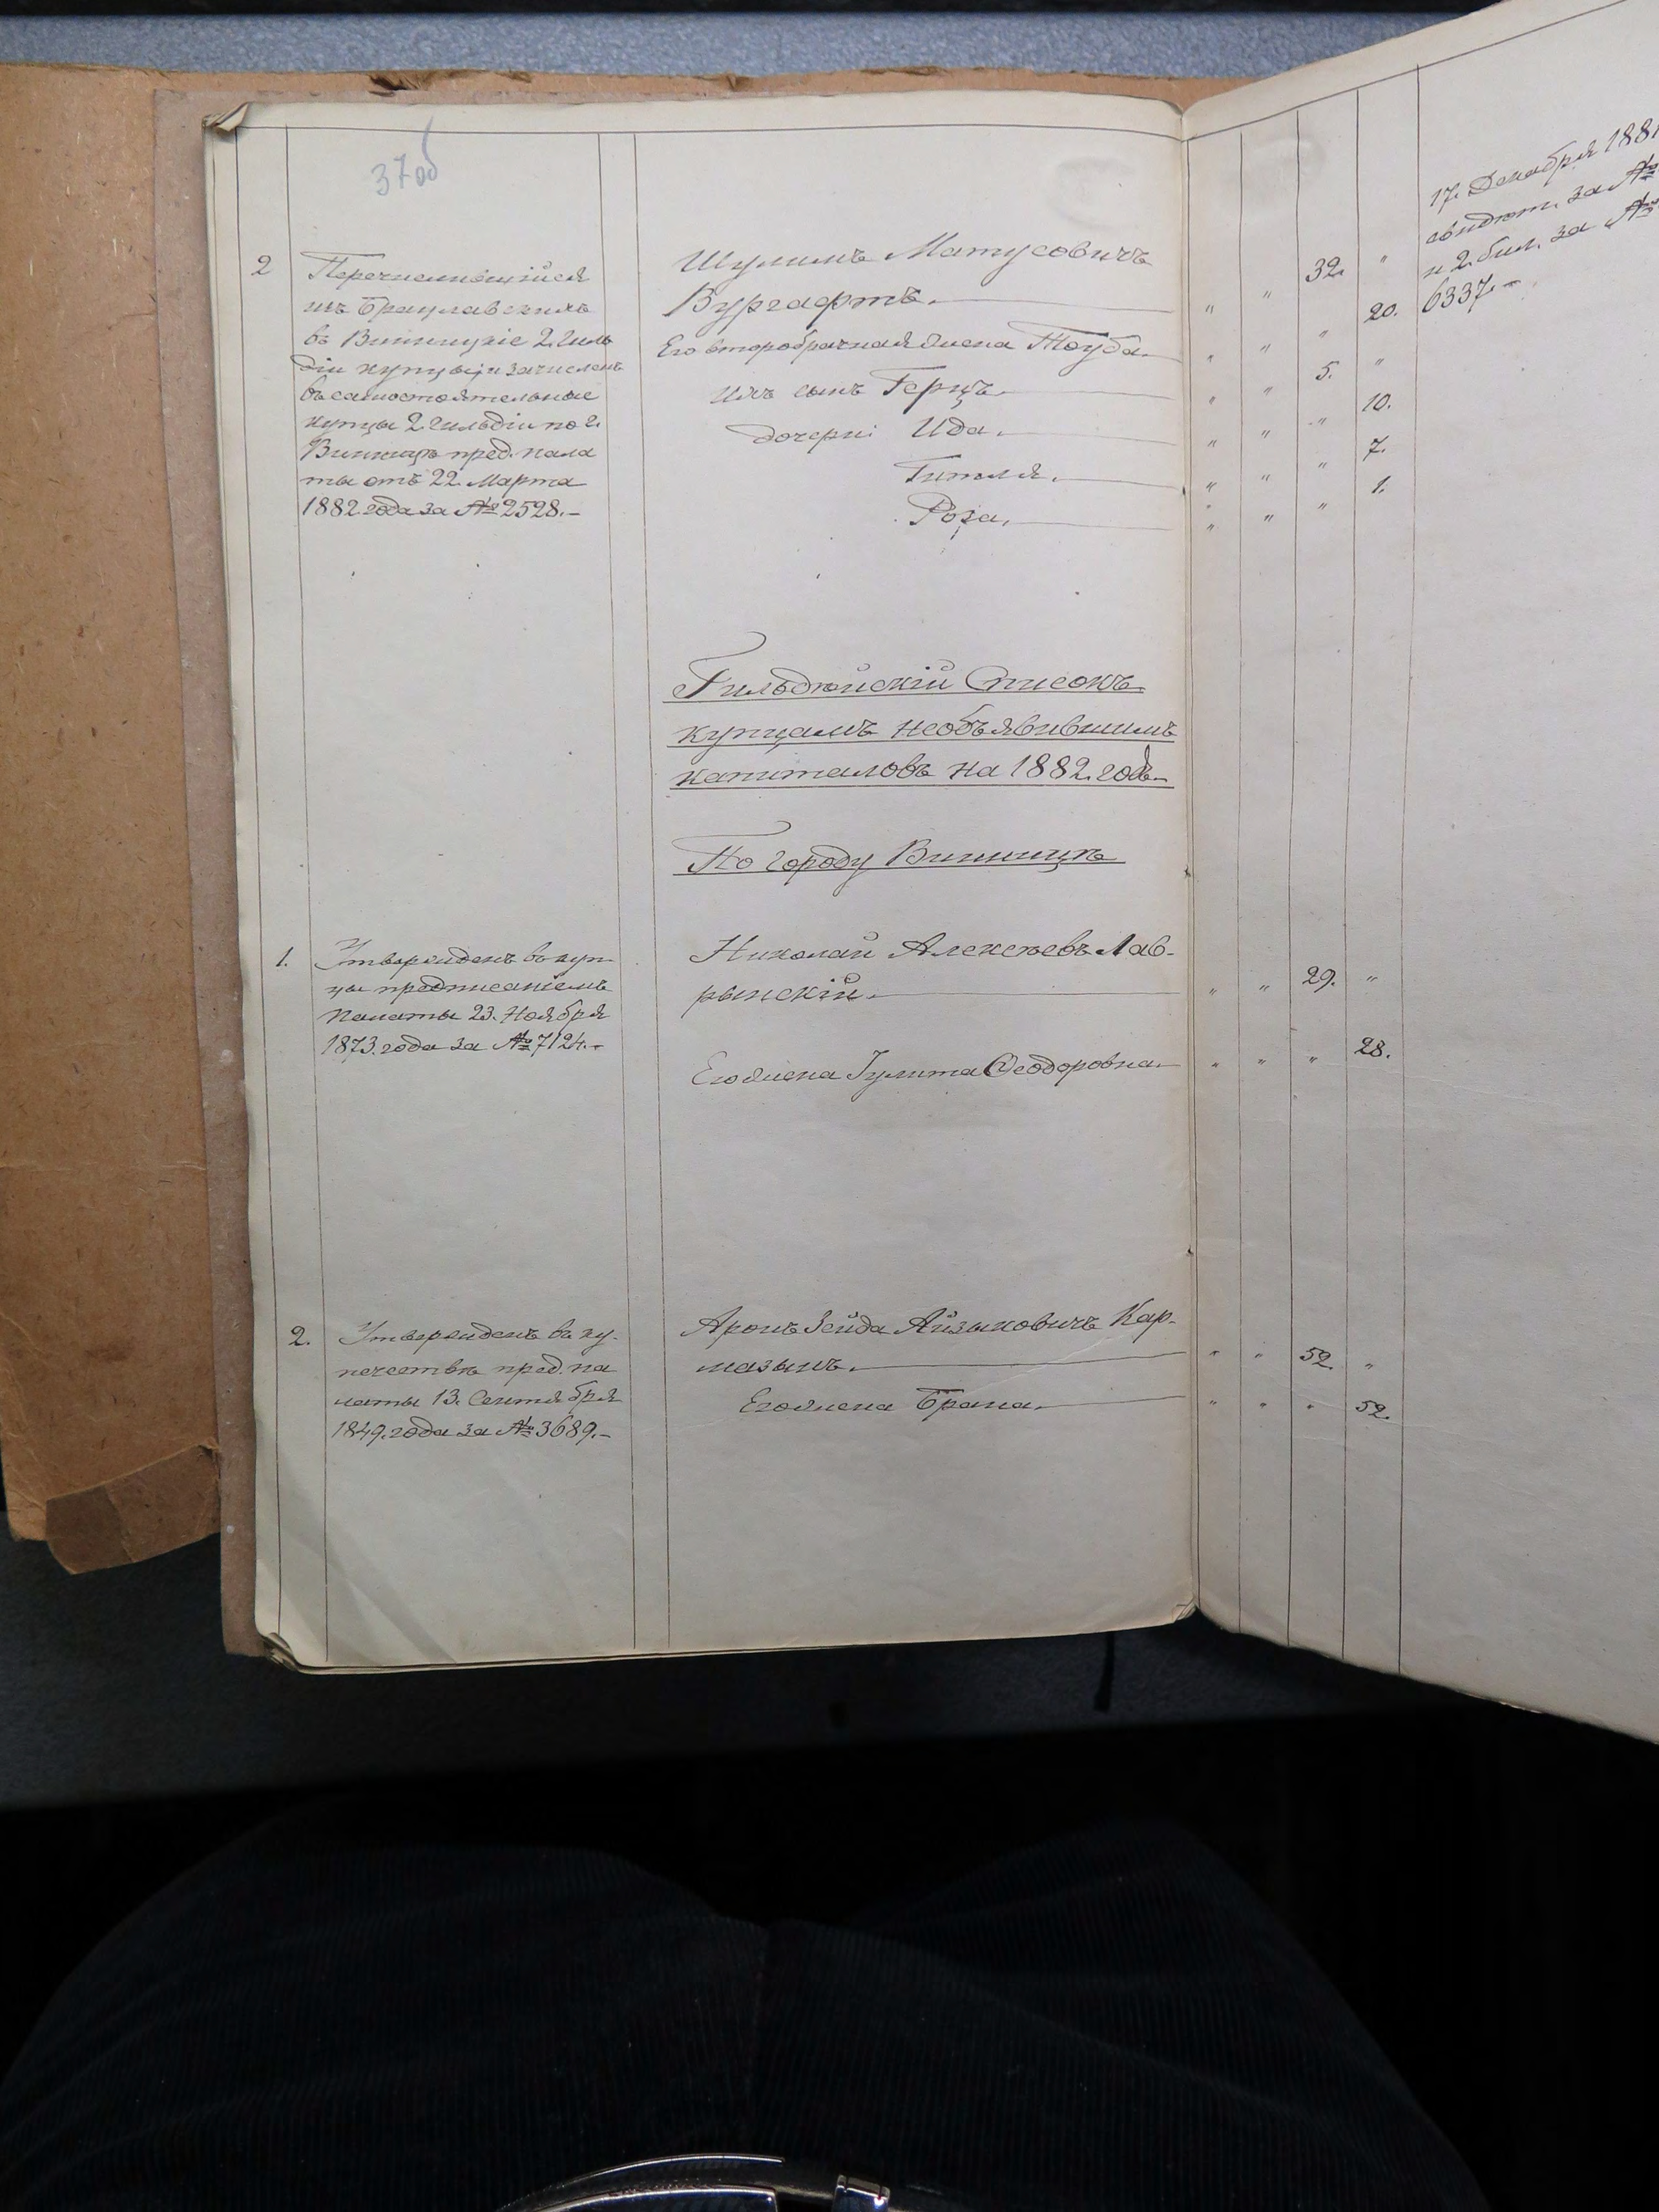 37 об
2 Перечислившійся
изъ Брацлавскихъ
въ Винницкіе 2. Гиль
діи купцы и зачисленъ
въ самостоятельные
купцы 2. гильдіи по г.
Винницѣ пред. пала
ты отъ 22. Марта
1882. года за № 2528.-
Шулимъ Матусовичъ
Вургафтъ. " " 32. "
Его второбрачная жена Тоуба. " " " 20.
Ихъ сынъ Герцъ. " " 5. "
дочери: Ида. " " " 10.
Гитля. " " " 7.
Роза. " " " 1.
17. Декабря 1881
свидѣт. за №
и 2. бил. за №
6337.-
Гильдейскій Списокъ
купцамъ необъявившимъ
капиталовъ на 1882. годъ.-
По городу Винницѣ
1. Утвержденъ въ куп-
цы предписаніемъ
Палаты 23. Ноября
1873. года за № 7124.-
Николай Алексѣевъ Лав-
рынскій. " " 29. "
Его жена Іулита Ѳеодоровна. " " " 28.
2. Утвержденъ въ ку-
печествѣ пред. па
латы 13. Сентября
1849. года за № 3689.-
Аронъ Зейда Айзыковичъ Кар-
мазынъ. " " 52. "
Его жена Брана. " " " 52.